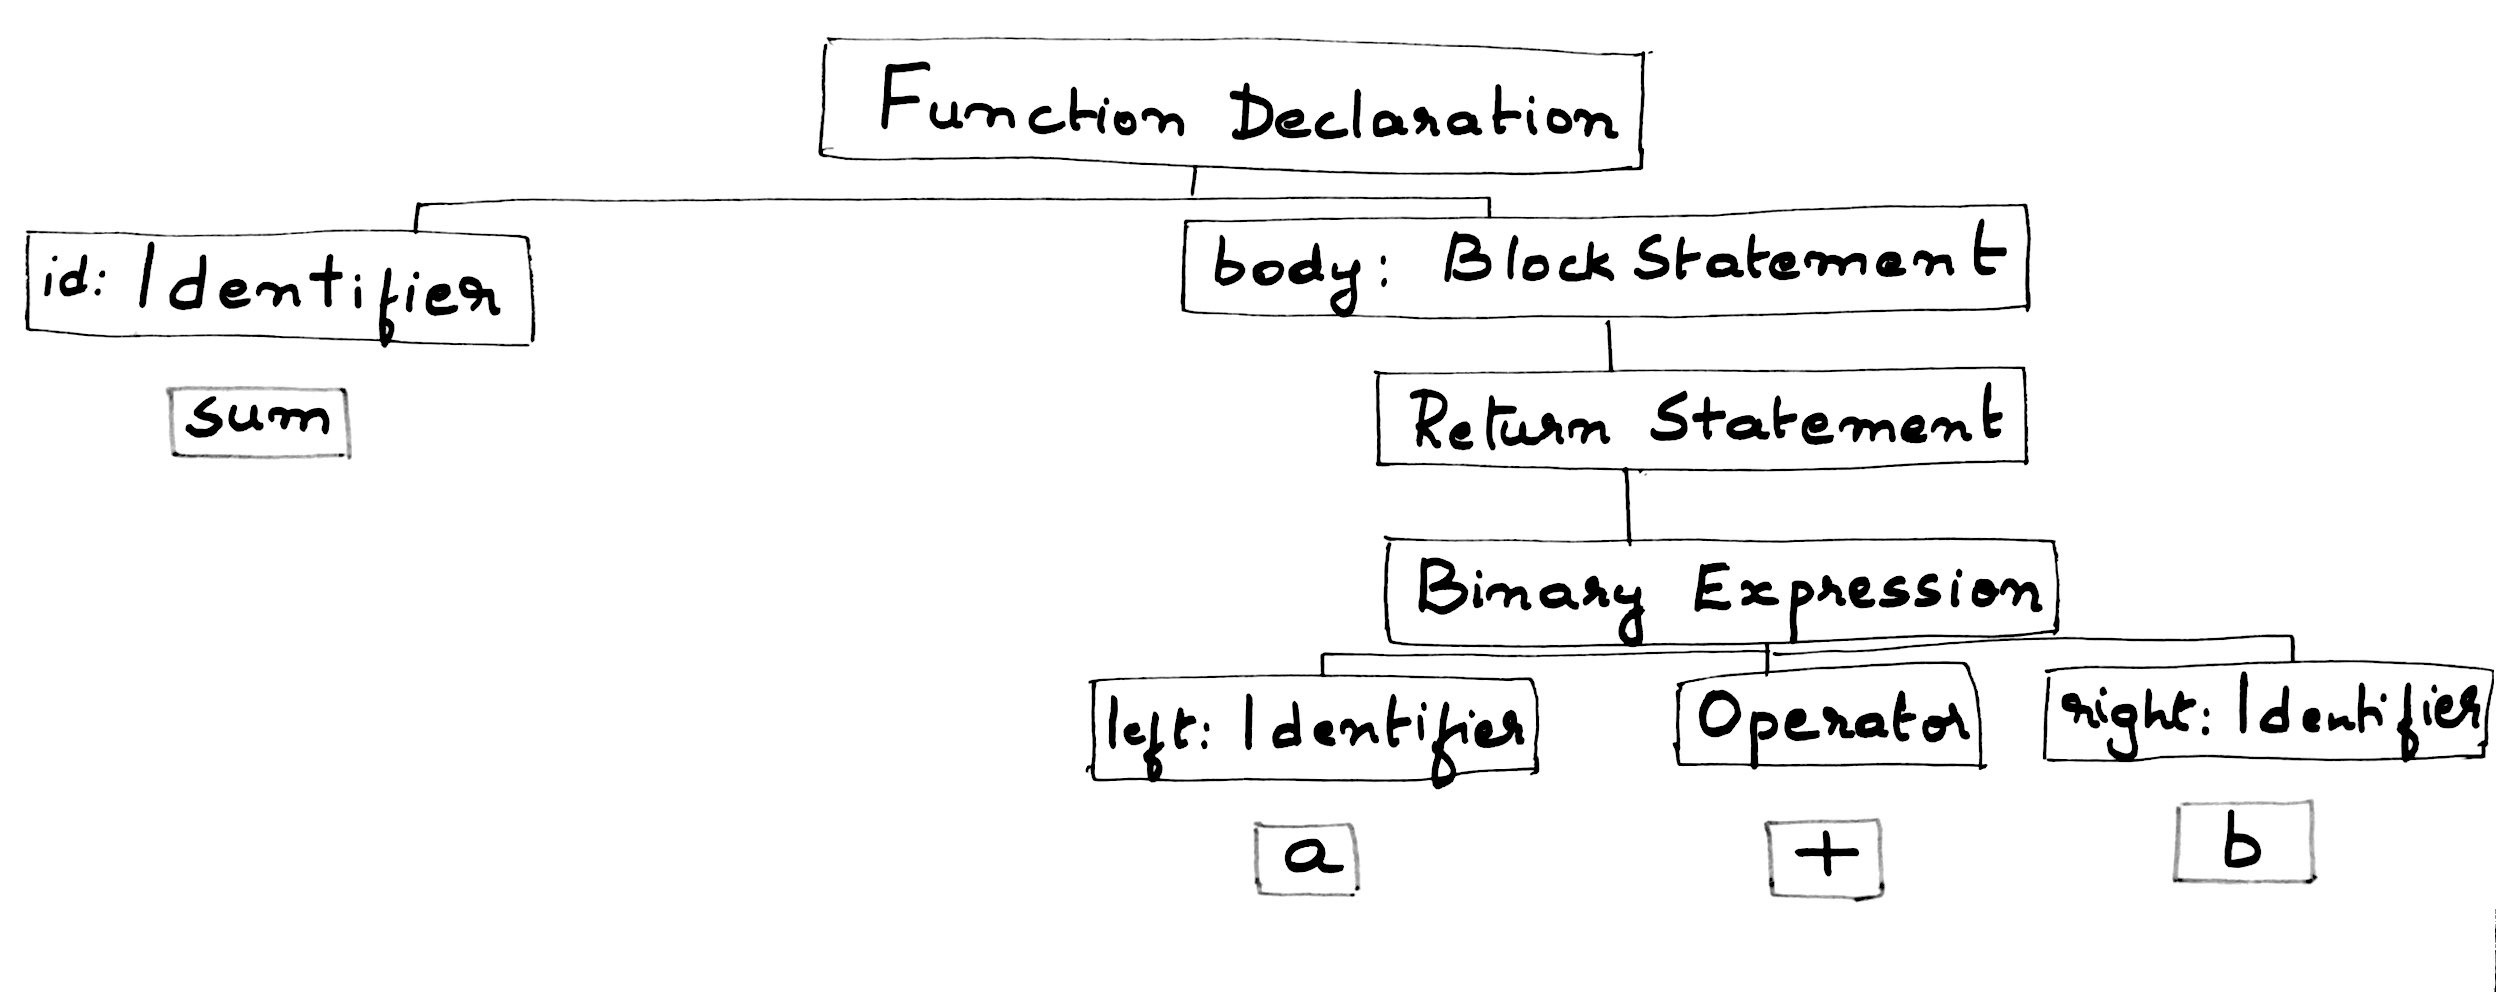 Function Declaration
id: Identifier
body: Block Statement
sum
Return Statement
Binary Expression
left: Identifier
Operator
right: Identifier
a
+
b